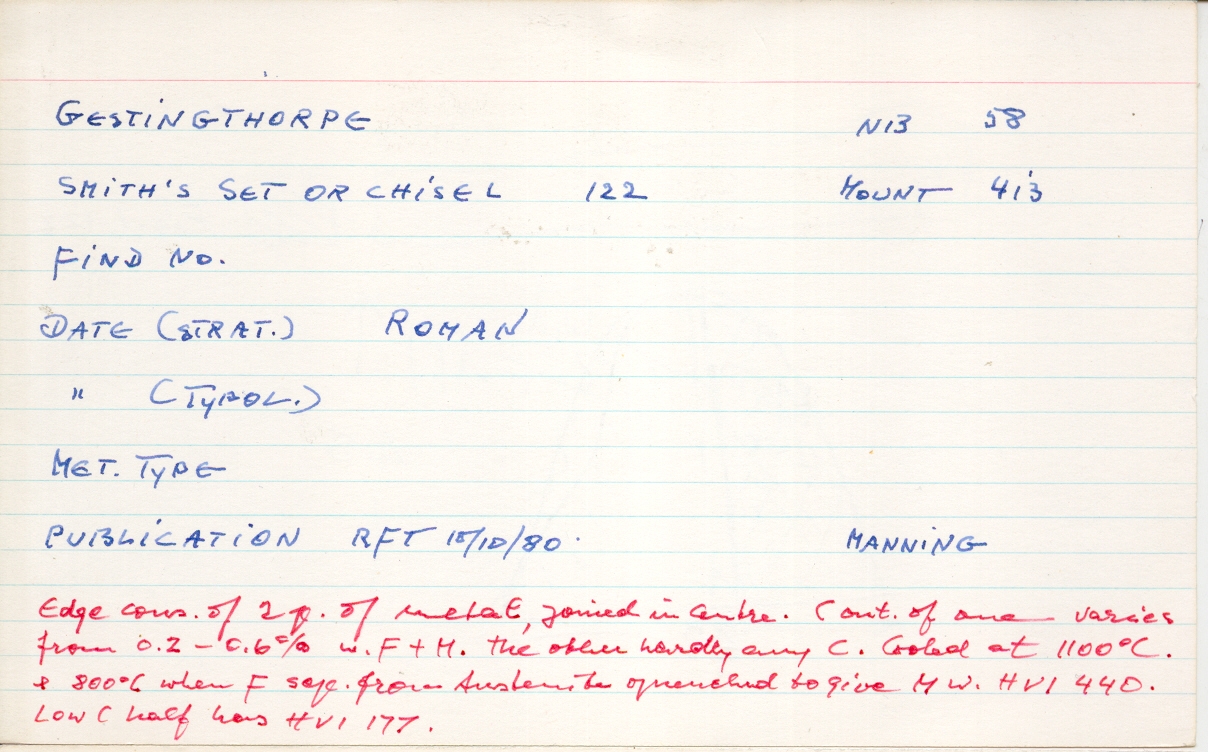 GESTINGTHORPE NB 58
SMITH'S SET OR CHISEL 122 MOUNT 413
FIND NO.
DATE (STRAT.) ROMAN
" (TYPOL.)
MET. TYPE
PUBLICATION RFT /10/80. MANNING
Edge cons. of 2 p. of metal, joined in centre. C cont. of one varies
from 0.2 - 0.6% w. F + M. The other hardly any C. Cooled at 1100°C.
& 800°C when F sep. from Austenite quenched to give M w. HV1 440.
Low C half has HV1 177.